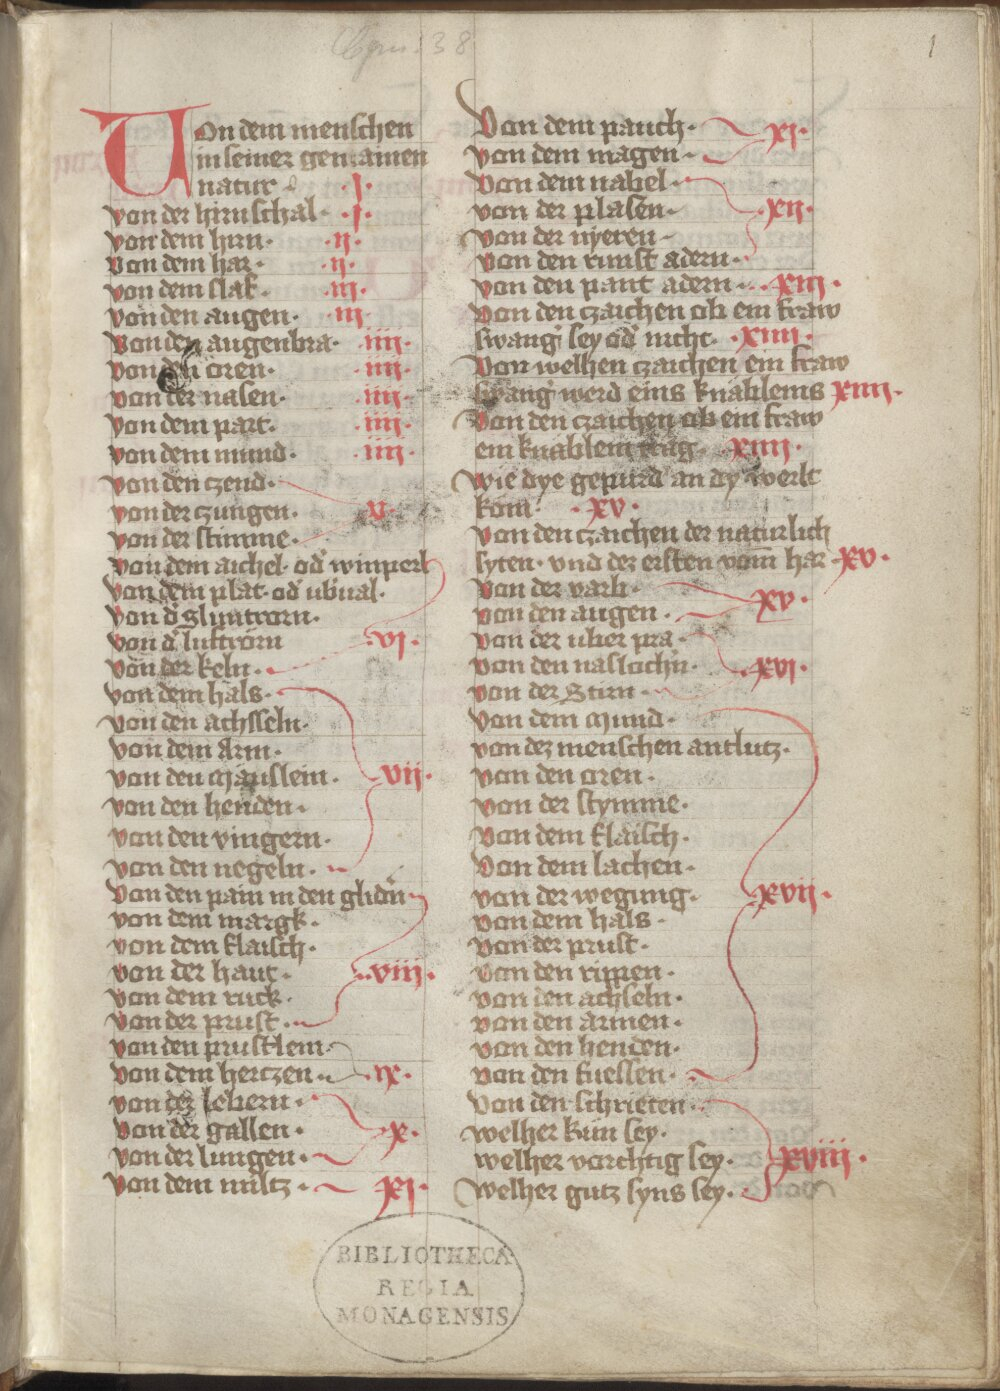 Cgm. 38
1
Von dem menschen
in seiner gemainen
natur .j.
von der hirnschal .j.
von dem hirn. .ij.
von dem har. .ij.
von dem slaf. .iij.
von den augen. iij
Von den augenbra. iiij.
Von den oren. .iiij.
von der nasen. .iiij.
von dem part. .iiij.
von dem mund. .iiij.
von den czend.
von der czungen. .v.
von der stimme.
von dem aichel. od' winperl
von dem plat. od' ubual.
von d' sluntrorn.
von d' luftrorn .vi.
von der keln.
von dem hals.
von den achsseln.
von dem Arm.
von den mäuslein. .vij.
von den henden.
von den vingern.
von den negeln.
Von den pain in den glidn
von dem margk.
von dem flaisch.
von der haut. .viij.
von dem ruck.
von der prust.
von den prustlein.
von dem hertzen. .ix.
von der lebern.
von der gallen. .x.
von der lungen.
von dem miltz. .xj.
Von dem pauch. .xj.
von dem magen.
Von dem nabel.
von der plasen. .xij.
von der nyeren
von den runst adern.
von den pant adern. .xiij.
Von den czaichen ob ein fraw
swang' sey od' nicht. .xiiij.
Von welhen czaichen ein fraw
swang' werd eins knäbleins xiiij.
Von den czaichen ob ein fraw
ein knäblein trag. xiiij.
wie dye gepurd an dy werlt
kom. .xv.
von den czaichen der naturlich
syten. vnd der ersten vom har .xv.
Von der varb. .xv.
von den augen.
von der uber pra.
von den naslochn. .xvj.
von der Stirn.
von dem mund.
von dez menschen antlutz.
von den oren.
von der stymme.
von dem flaisch.
Von dem lachen.
von der wegung. .xvij.
von dem hals.
von der prust.
von den rippen.
von den achseln.
von den armen.
von den henden.
von den fuessen.
Von den schrieten.
welher kün sey.
welher vorchtig sey. .xviij.
Welher gutz syns sey.
BIBLIOTHECA
REGIA
MONACENSIS